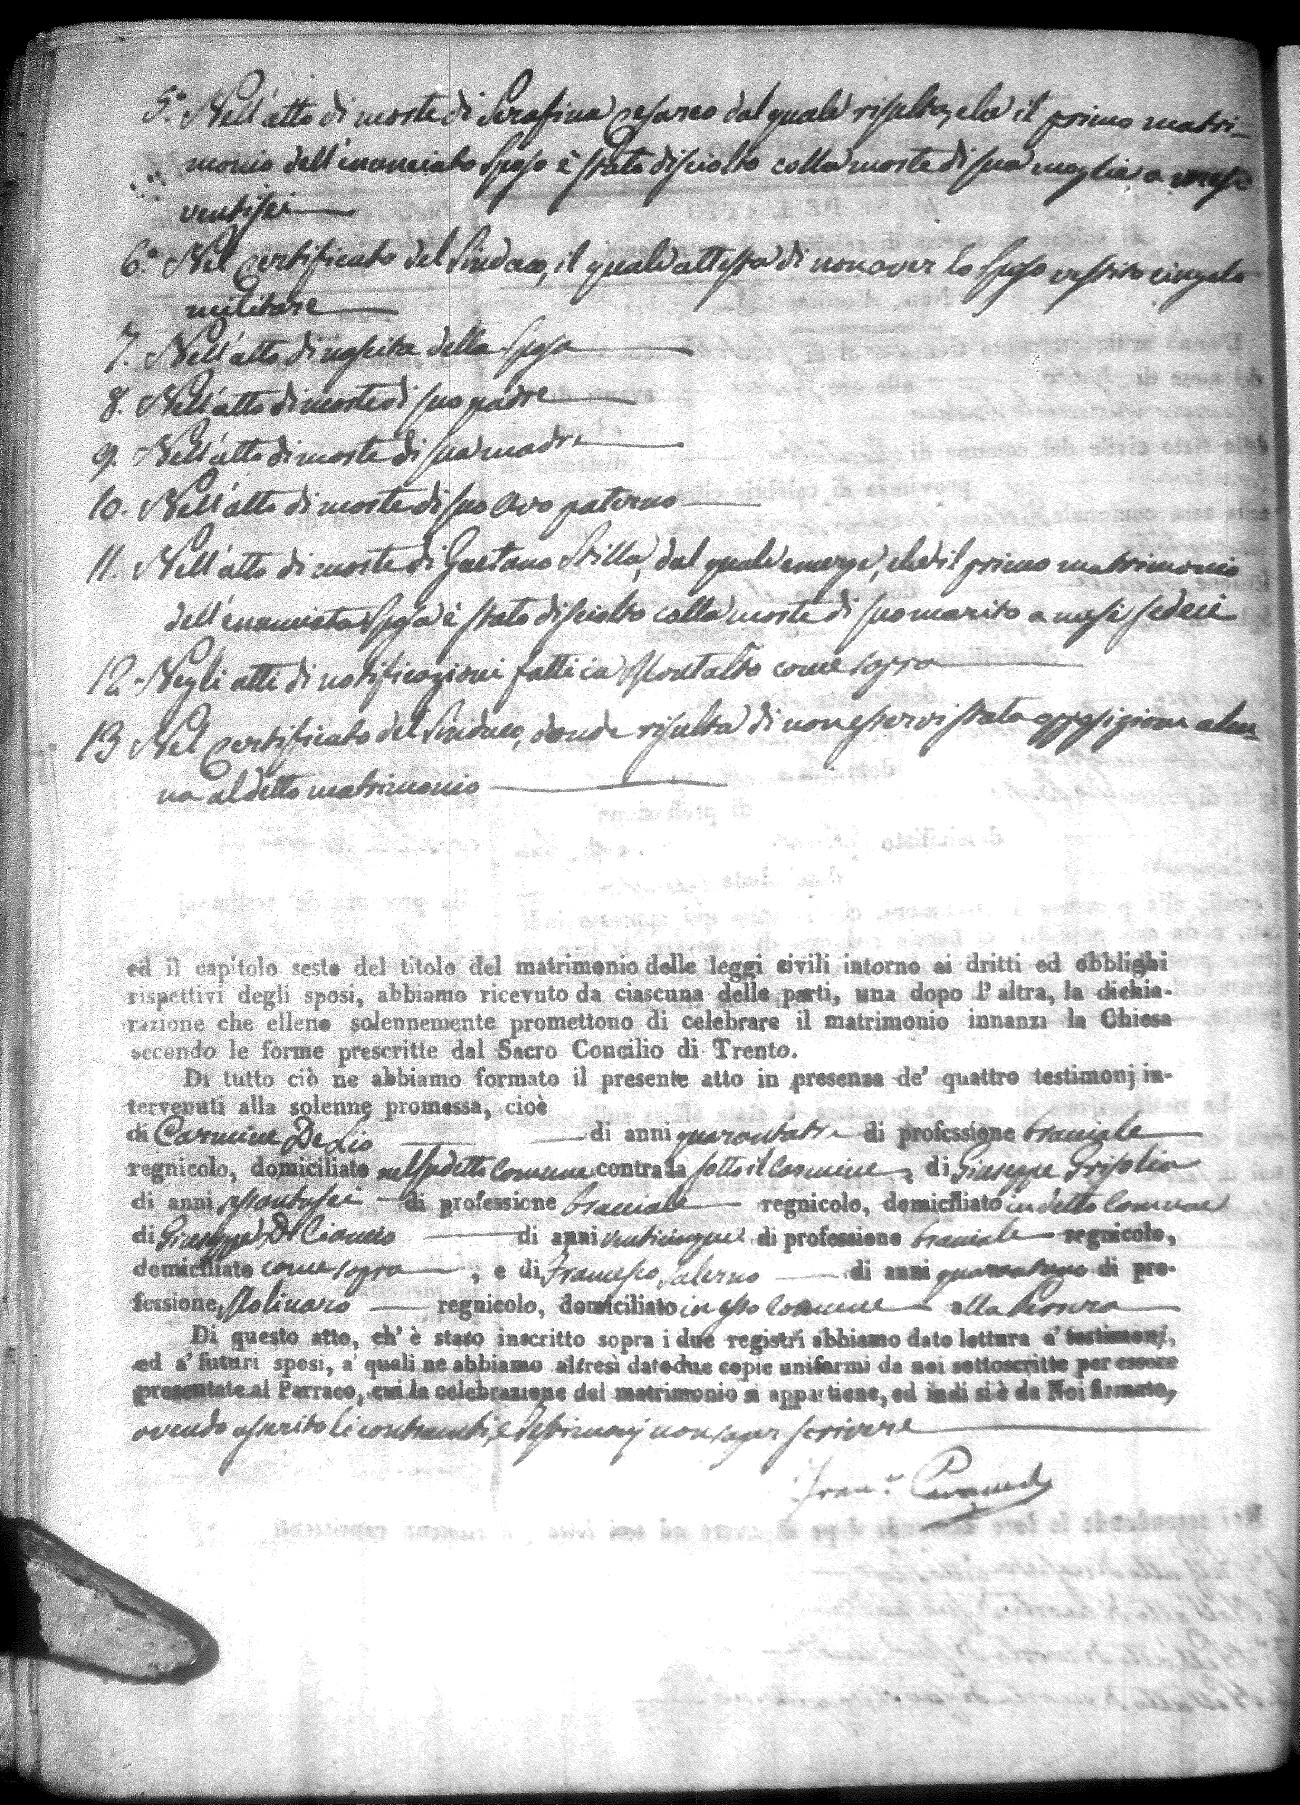 5.° Nell'atto di morte di Serafina Cesareo dal quale risulta, che il primo matri-
monio dell'enunciato Sposo è stato disciolto colla morte di sua moglie a mesi
ventisei
6.° Nel Certificato del Sindaco, il quale attesta di non aver lo Sposo vestito cingolo
militare
7. Nell'atto di nascita della Sposa
8. Nell'atto di morte di suo padre
9. Nell'atto di morte di sua madre
10. Nell'atto di morte di suo Avo paterno
11. Nell'atto di morte di Gaetano Stilla, dal quale emerge, che il primo matrimonio
dell'enunciata Sposa è stato disciolto colla morte di suo marito a mesi sedeci
12. Negli atti di notificazioni fatti in Montalto come sopra
13 Nel Certificato del Sindaco, donde risulta di non esservi stata opposizione alcu-
na al detto matrimonio
ed il capitolo sesto del titolo del matrimonio delle leggi civili intorno ai dritti ed obblighi
rispettivi degli sposi, abbiamo ricevuto da ciascuna delle parti, una dopo l'altra, la dichia-
razione che elleno solennemente promettono di celebrare il matrimonio innanzi la Chiesa
secondo le forme prescritte dal Sacro Concilio di Trento.
Di tutto ciò ne abbiamo formato il presente atto in presenza de' quattro testimonj in-
tervenuti alla solenne promessa, cioè
di Carmine De Lio di anni quarantatre di professione bracciale
regnicolo, domiciliato nel sudetto Comune contrada sotto il Carmine, di Giuseppe Grisolia
di anni di professione bracciale regnicolo, domiciliato in detto Comune
di Giuseppe De Cianni di anni venticinque di professione bracciale regnicolo,
domiciliato come sopra, e di Francesco Salerno di anni di pro-
fessione Molinaro regnicolo, domiciliato in esso Comune alla
Di questo atto, ch' è stato inscritto sopra i due registri abbiamo dato lettura a' testimonj,
ed a' futuri sposi, a' quali ne abbiamo altresì dato due copie uniformi da noi sottoscritte per essere
presentate al Parroco, cui la celebrazione del matrimonio si appartiene, ed indi si è da Noi firmato,
avendo asserito li contraenti, e testimonj non saper scrivere
Fran.°